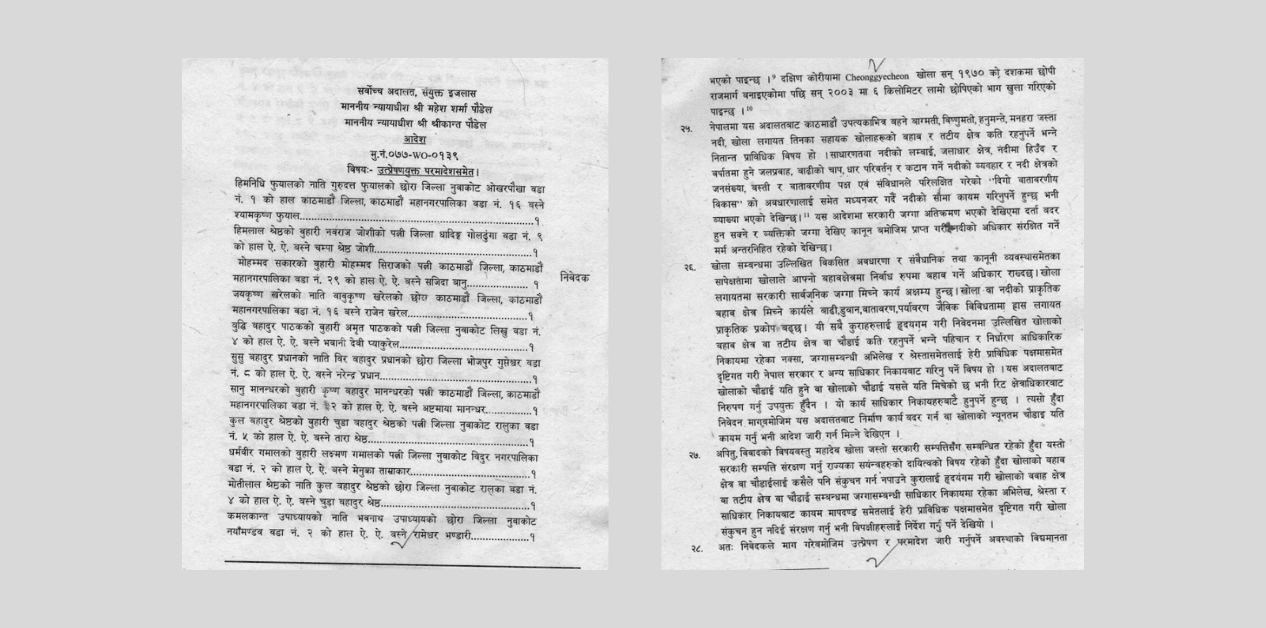 सर्वोच्च अदालत, संयुक्त इजलास
माननीय न्यायाधीश श्री महेश शर्मा पौडेल
माननीय न्यायाधीश श्री श्रीकान्त पौडेल
आदेश
मु.नं.०७७-WO-०१३९
विषयः- उत्प्रेषणयुक्त परमादेशसमेत।
हिमनिधि फुयालको नाति गुरुदत्त फुयालको छोरा जिल्ला नुवाकोट ओखरपौवा वडा
नं. १ को हाल काठमाडौं जिल्ला, काठमाडौं महानगरपालिका वडा नं. १६ बस्ने
श्यामकृष्ण फुयाल.......................................................................१
हिमलाल श्रेष्ठको बुहारी नवराज जोशीको पत्नी जिल्ला धादिङ्ग गोलढुंगा वडा नं. ९
को हाल ऐ. ऐ. बस्ने चम्पा श्रेष्ठ जोशी................................................१
मोहम्मद सकारको बुहारी मोहम्मद सिराजको पत्नी काठमाडौं जिल्ला, काठमाडौं
महानगरपालिका वडा नं. २९ को हाल ऐ. ऐ. बस्ने सजिदा बानु.................... १
निवेदक
जयकृष्ण खरेलको नाति बाबुकृष्ण खरेलको छोरा काठमाडौं जिल्ला, काठमाडौं
महानगरपालिका वडा नं. १६ बस्ने राजेन खरेल.....................................१
बुद्धि बहादुर पाठकको बुहारी अमृत पाठकको पत्नी जिल्ला नुवाकोट लिखु वडा नं.
४ को हाल ऐ. ऐ. बस्ने भवानी देवी प्याकुरेल.......................................१
सुसु बहादुर प्रधानको नाति विर बहादुर प्रधानको छोरा जिल्ला भोजपुर गुसेश्वर वडा
नं. ८ को हाल ऐ. ऐ. बस्ने नरेन्द्र प्रधान.............................................१
सानु मानन्धरको बुहारी कृष्ण बहादुर मानन्धरको पत्नी काठमाडौं जिल्ला, काठमाडौं
महानगरपालिका वडा नं. २ को हाल ऐ. ऐ. बस्ने अष्टमाया मानन्धर..............१
कुल बहादुर श्रेष्ठको बुहारी चुडा बहादुर श्रेष्ठको पत्नी जिल्ला नुवाकोट रालुका वडा
नं. ५ को हाल ऐ. ऐ. बस्ने तारा श्रेष्ठ................................................१
धर्मवीर गमालको बुहारी लक्ष्मण गमालको पत्नी जिल्ला नुवाकोट विदुर नगरपालिका
वडा नं. २ को हाल ऐ. ऐ. बस्ने मेनुका ताम्राकार....................................१
मोतीलाल श्रेष्ठको नाति कुल बहादुर श्रेष्ठको छोरा जिल्ला नुवाकोट रालुका वडा नं.
४ को हाल ऐ. ऐ. बस्ने चुडा बहादुर श्रेष्ठ............................................१
कमलकान्त उपाध्यायको नाति भवनाथ उपाध्यायको छोरा जिल्ला नुवाकोट
नयाँमण्डव वडा नं. २ को हाल ऐ. ऐ. बस्ने रामेश्वर भण्डारी.....................१
भएको पाइन्छ ।⁹ दक्षिण कोरीयामा Cheonggyecheon खोला सन् १९७० को दशकमा छोपी
राजमार्ग बनाइएकोमा पछि सन् २००३ मा ६ किलोमिटर लामो छोपिएको भाग खुला गरिएको
पाइन्छ ।¹⁰
२५. नेपालमा यस अदालतबाट काठमाडौं उपत्यकाभित्र बहने बाग्मती, विष्णुमती, हनुमन्ते, मनहरा जस्ता
नदी, खोला लगायत तिनका सहायक खोलाहरूको बहाव र तटीय क्षेत्र कति रहनुपर्ने भन्ने
नितान्त प्राविधिक विषय हो ।साधारणतया नदीको लम्बाई, जलाधार क्षेत्र, नदीमा हिउँद र
वर्षातमा हुने जलप्रवाह, बाढीको चाप, धार परिवर्तन र कटान गर्ने नदीको व्यवहार र नदी क्षेत्रको
जनसंख्या, बस्ती र वातावरणीय पक्ष एवं संविधानले परिलक्षित गरेको "दिगो वातावरणीय
विकास" को अवधारणालाई समेत मध्यनजर गर्दै नदीको सीमा कायम गरिनुपर्ने हुन्छ भनी
व्याख्या भएको देखिन्छ।¹¹ यस आदेशमा सरकारी जग्गा अतिक्रमण भएको देखिएमा दर्ता वदर
हुन सक्ने र व्यक्तिको जग्गा देखिए कानून बमोजिम प्राप्त गरी नदीको अधिकार संरक्षित गर्ने
मर्म अन्तरनिहित रहेको देखिन्छ।
२६. खोला सम्बन्धमा उल्लिखित विकसित अवधारणा र संवैधानिक तथा कानूनी व्यवस्थासमेतका
सापेक्षतामा खोलाले आफ्नो बहावक्षेत्रमा निर्वाध रुपमा बहाव गर्ने अधिकार राख्दछ।खोला
लगायतमा सरकारी सार्वजनिक जग्गा मिच्ने कार्य अक्षम्य हुन्छ।खोला वा नदीको प्राकृतिक
बहाव क्षेत्र मिच्ने कार्यले बाढी,डुवान,वातावरण,पर्यावरण जैविक विविधतामा ह्रास लगायत
प्राकृतिक प्रकोप बढ्छ। यी सबै कुराहरुलाई हृदयगंम गरी निवेदनमा उल्लिखित खोलाको
बहाब क्षेत्र वा तटीय क्षेत्र वा चौडाई कति रहनुपर्ने भन्ने पहिचान र निर्धारण आधिकारिक
निकायमा रहेका नक्सा, जग्गासम्बन्धी अभिलेख र श्रेस्तासमेतलाई हेरी प्राविधिक पक्षमासमेत
दृष्टिगत गरी नेपाल सरकार र अन्य साधिकार निकायबाट गरिनु पर्ने विषय हो ।यस अदालतबाट
खोलाको चौडाई यति हुने वा खोलाको चौडाई यसले यति मिचेको छ भनी रिट क्षेत्राधिकारबाट
निरुपण गर्नु उपयुक्त हुँदैन । यो कार्य साधिकार निकायहरुबाटै हुनुपर्ने हुन्छ । त्यसो हुँदा
निवेदन मागबमोजिम यस अदालतबाट निर्माण कार्य वदर गर्न वा खोलाको न्यूनतम चौडाइ यति
कायम गर्नु भनी आदेश जारी गर्न मिल्ने देखिएन ।
२७. अपितु, विवादको विषयवस्तु महादेव खोला जस्तो सरकारी सम्पत्तिसँग सम्बन्धित रहेको हुँदा यस्तो
सरकारी सम्पत्ति संरक्षण गर्नु राज्यका संयन्त्रहरुको दायित्वको विषय रहेको हुँदा खोलाको बहाब
क्षेत्र वा चौडाईलाई कसैले पनि संकुचन गर्न नपाउने कुरालाई हृदयंगम गरी खोलाको ववाह क्षेत्र
वा तटीय क्षेत्र वा चौडाई सम्बन्धमा जग्गासम्बन्धी साधिकार निकायमा रहेका अभिलेख, श्रेस्ता र
साधिकार निकायबाट कायम मापदण्ड समेतलाई हेरी प्राविधिक पक्षमासमेत दृष्टिगत गरी खोला
संकुचन हुन नदिई संरक्षण गर्नु भनी विपक्षीहरुलाई निर्देश गर्नु पर्ने देखियो ।
२८. अतः निवेदकले माग गरेबमोजिम उत्प्रेषण र परमादेश जारी गर्नुपर्ने अवस्थाको विद्यमानता